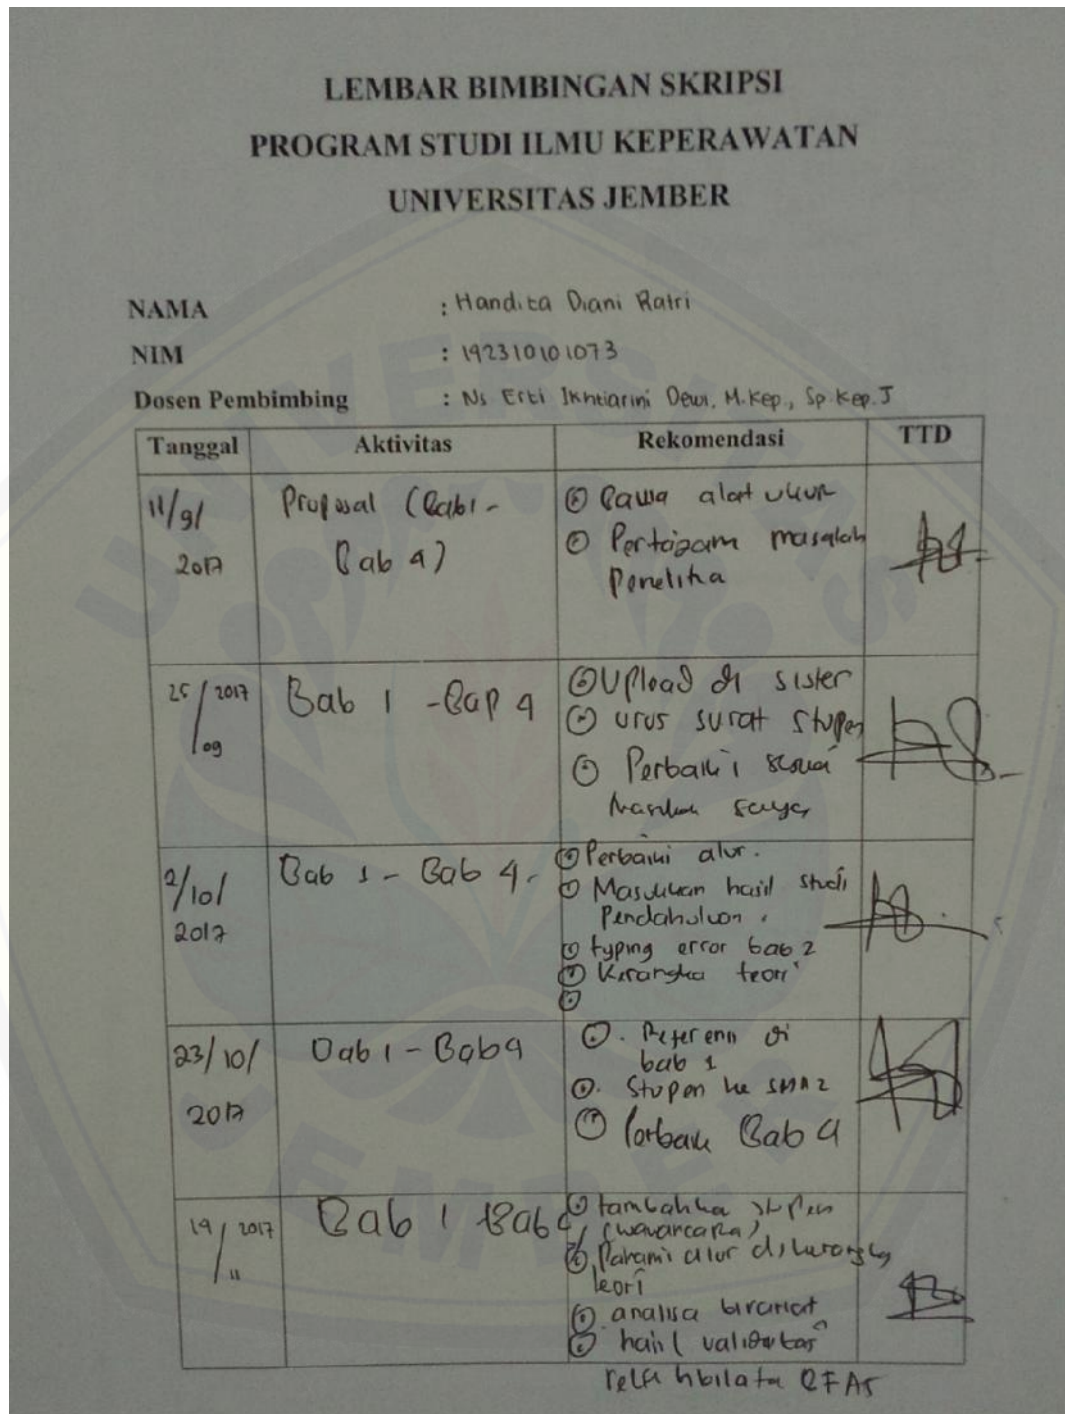 LEMBAR BIMBINGAN SKRIPSI
PROGRAM STUDI ILMU KEPERAWATAN
UNIVERSITAS JEMBER
NAMA : Handita Diani Ratri
NIM : 192310101073
Dosen Pembimbing : Ns Erti Ikhtiarini Dewi, M.Kep., Sp.Kep.J
Tanggal Aktivitas Rekomendasi TTD
11/9/
2017
Proposal (Bab 1 -
Bab 4)
Bawa alat ukur
Pertajam masalah
Penelitia
25/2017
/09
Bab 1 - Bab 4
Upload di sister
urus surat stupen
Perbaiki sesuai
saya
2/10/
2017
Bab 1 - Bab 4.
Perbaiki alur.
Masukkan hasil studi
Pendahuluan.
typing error bab 2
Kerangka teori
23/10/
2017
Bab 1 - Bab 4
Referensi di
bab 1
Stupen ke SMA 2
Bab 4
19/2017
/11
Bab 1 - Bab 4
tambahka stupen
(wawancara)
Pahami alur di kerangka
teori
analisa bivariat
hasil validitas
UNIVERSITAS
JEMBER